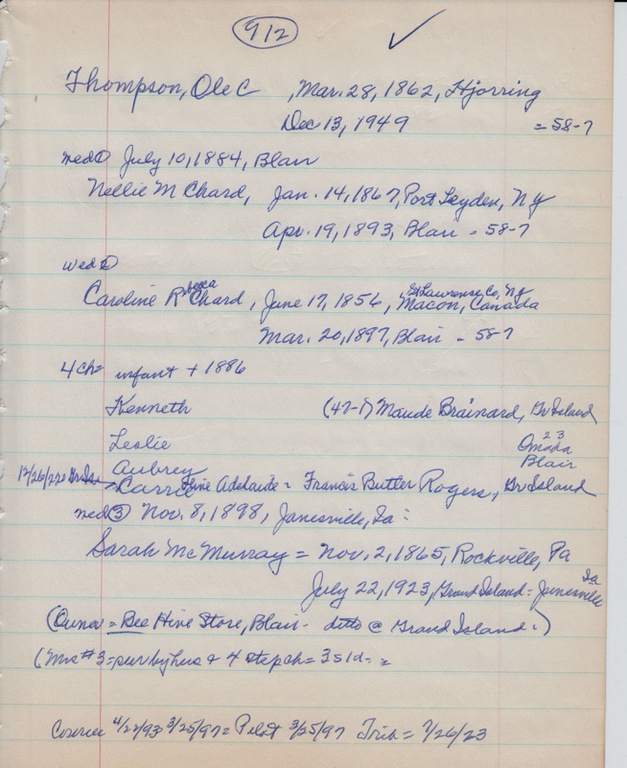 912 ✓
Thompson, Ole C , Mar. 28, 1862, Hjorring
Dec 13, 1949 = 58-7
wed ① July 10, 1884, Blair
Nellie M Chard, Jan. 14, 1867, Port Leyden, NY
Apr. 19, 1893, Blair - 58-7
wed ②
Caroline Rebecca Chard, June 17, 1856, St Lawrense Co, Ny Macon, Canada
Mar. 20, 1897, Blair - 58-7
4 ch= infant + 1886
Kenneth (47-1) Maude Brainard, Gr Island
Leslie 23 Omaha
Aubrey Blair
12/26/22 Gr Isl Carrie Adelaide = Francis Butler Rogers, Gr Island
wed ③ Nov. 8, 1898, Janesville, Ia :
Sarah McMurray = Nov. 2, 1865, Rockville, Pa
July 22, 1923, Grand Island = Janesville Ia
(Owner = Bee Hive Store, Blair - ditto @ Grand Island.)
(Mrs #3 = sur by hus + 4 step ch = 3 s 1 d - =
Courier 4/27/93 3/25/97 = Pilot 3/25/97 Trib = 7/26/23